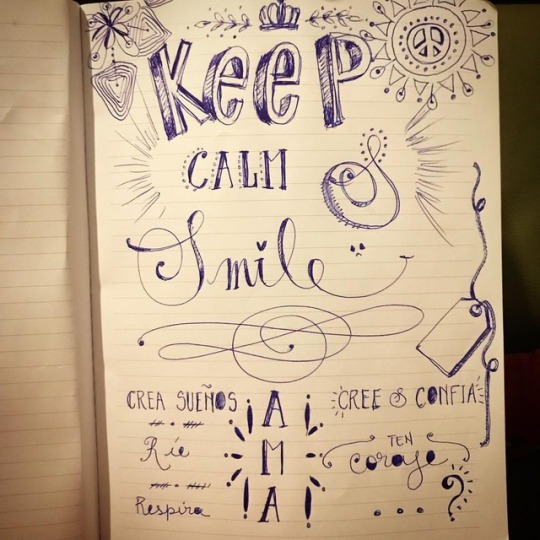 KEEP
CALM &
Smile
CREA SUEÑOS
Ríe
Respira
¡AMA!
CREE & CONFIA
TEN
coraje
...?